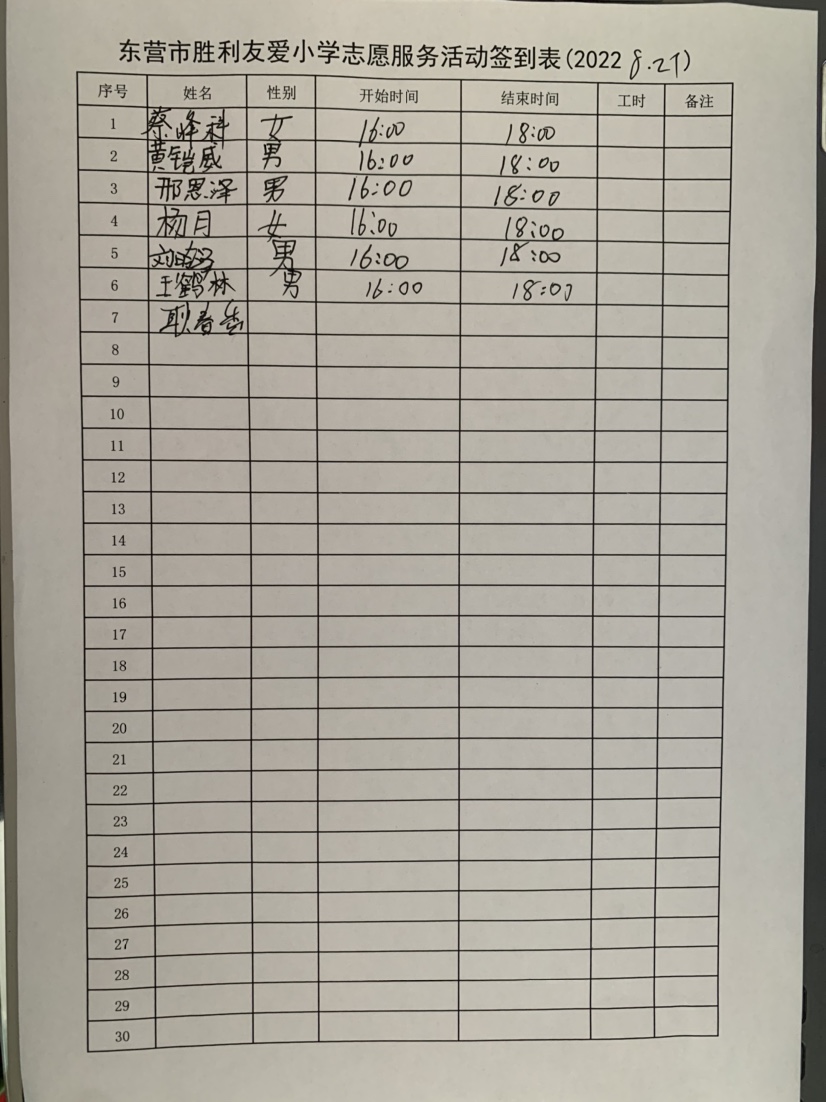 东营市胜利友爱小学志愿服务活动签到表(2022 8.27)
序号 姓名 性别 开始时间 结束时间 工时 备注
1 蔡峰科 女 16:00 18:00
2 黄铠威 男 16:00 18:00
3 邢思泽 男 16:00 18:00
4 杨月 女 16:00 18:00
5 男 16:00 18:00
6 王鹤林 男 16:00 18:00
7
8
9
10
11
12
13
14
15
16
17
18
19
20
21
22
23
24
25
26
27
28
29
30